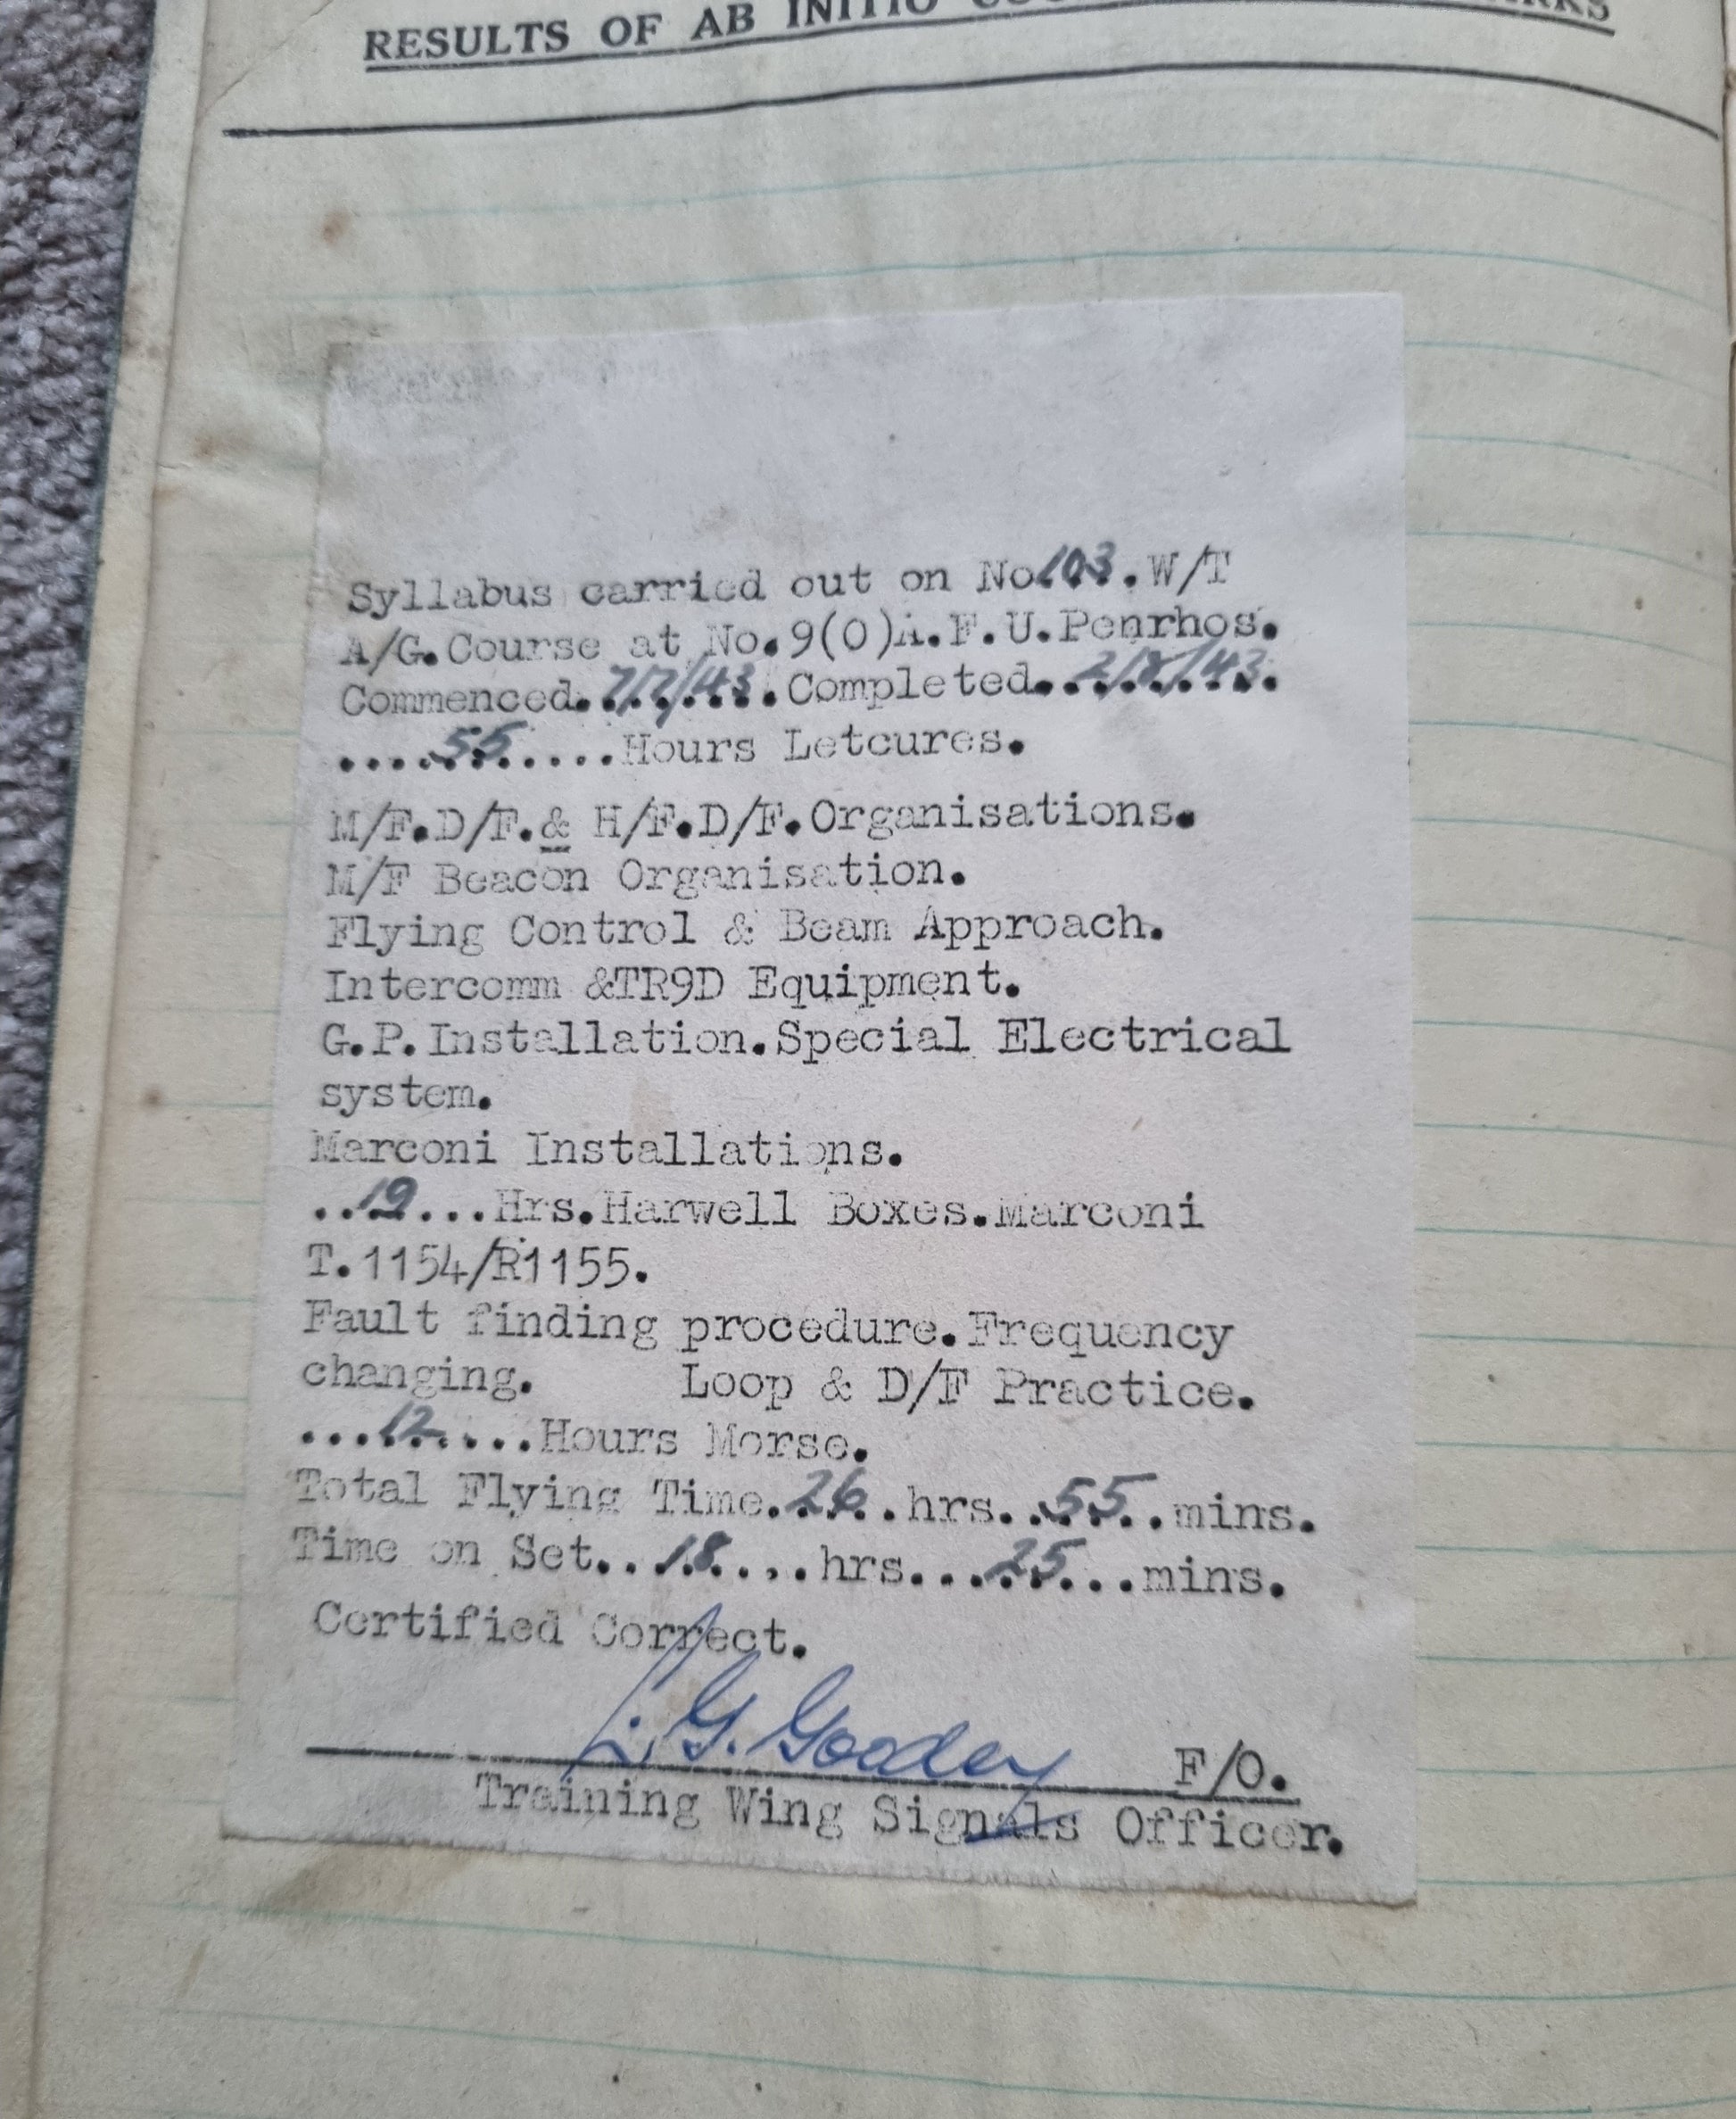 RESULTS OF AB INITIO
Syllabus carried out on No 103. W/T
A/G. Course at No. 9(O)A.F.U. Penrhos.
Commenced. 7/7/43. Completed. 2/8/43.
....55.....Hours Letcures.
M/F.D/F. & H/F.D/F. Organisations.
M/F Beacon Organisation.
Flying Control & Beam Approach.
Intercomm &TR9D Equipment.
G.P. Installation. Special Electrical
system.
Marconi Installations.
..19...Hrs. Harwell Boxes. Marconi
T.1154/R1155.
Fault finding procedure. Frequency
changing. Loop & D/F Practice.
...12.....Hours Morse.
Total Flying Time. 26..hrs..55..mins.
Time on Set..18....hrs...25...mins.
Certified Correct.
L. G. Goodey F/O.
Training Wing Signals Officer.